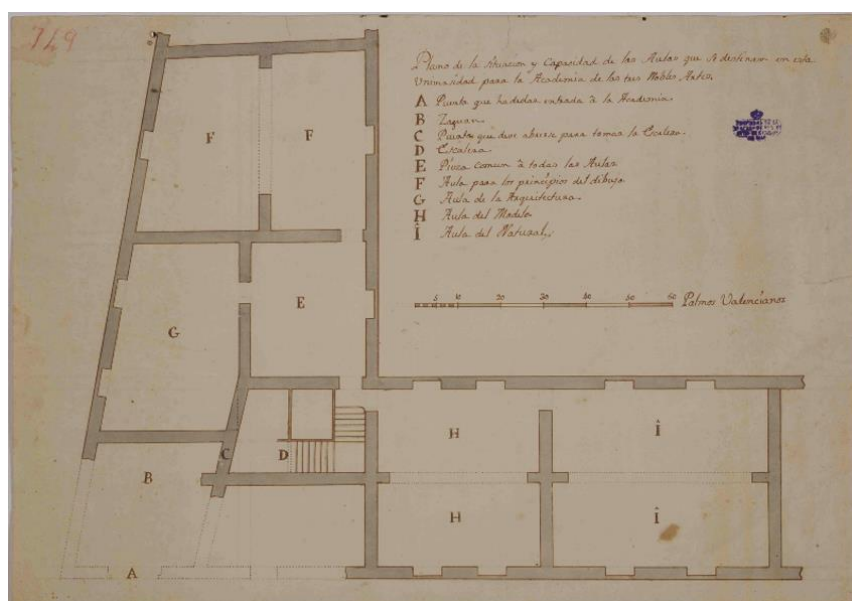 749
Plano de la situacion y Capasidad de las Aulas que se destinan en esta
Universidad para la Academia de las tres Nobles Artes.
A Puerta que ha de dar entrada à la Academia.
B Zaguan.
C Puerta que deve abrirse para tomar la Escalera.
D Escalera.
E Pieza comun à todas las Aulas
F Aula para los principios del dibujo
G Aula de la Arquitectura.
H Aula del Modelo
Î Aula del Natural.
5 10 20 30 40 50 60 Palmos Valencianos
F F
G E
B C D H Î
H Î
A